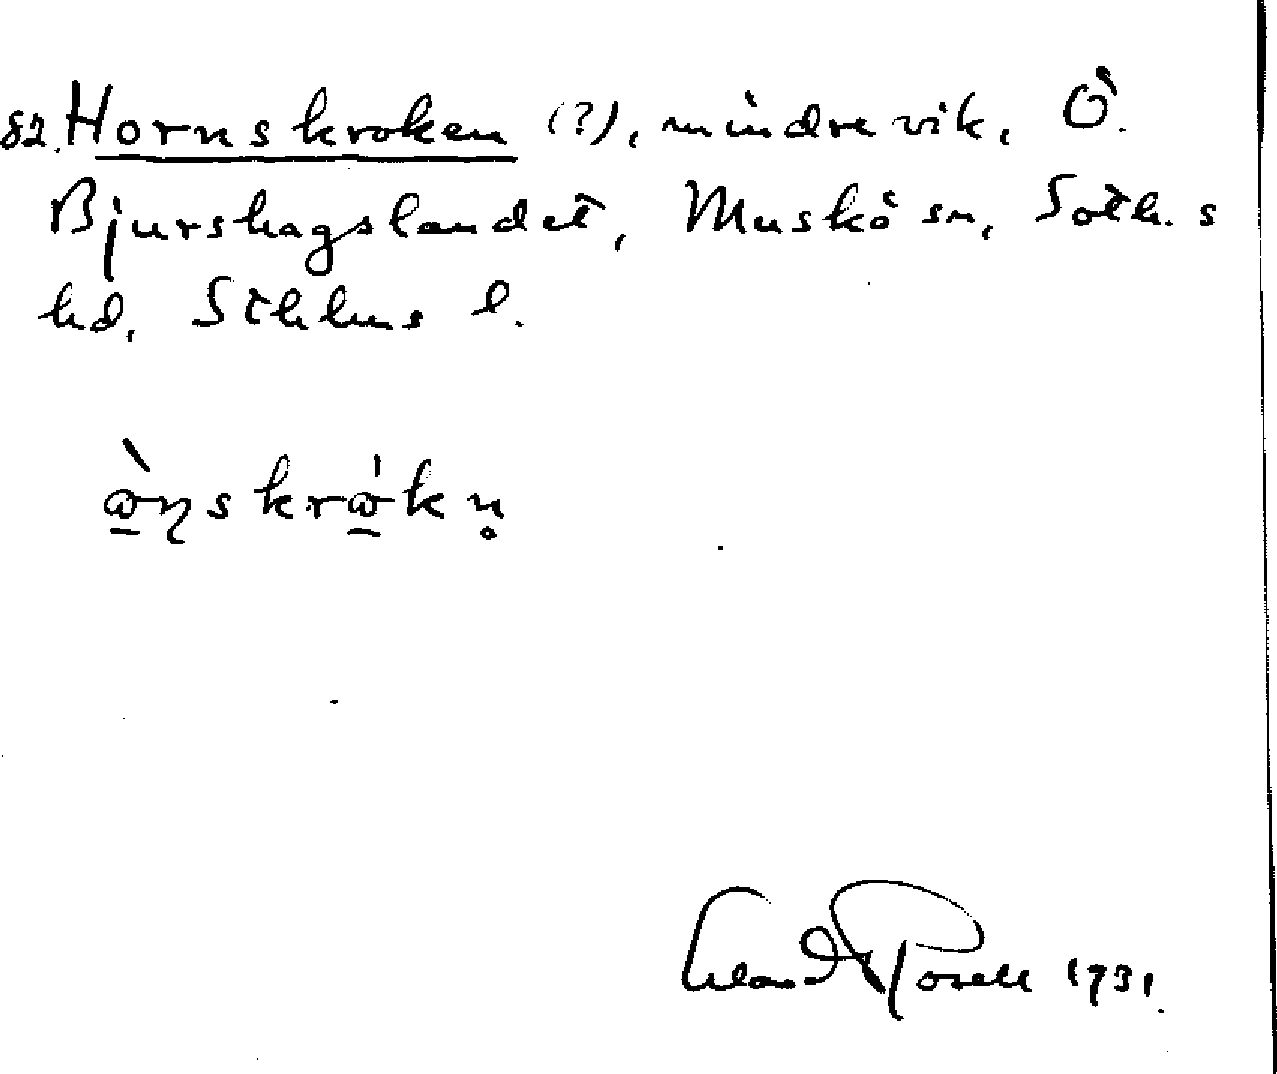 82. Hornskroken (?), mindre vik, Ö.
Bjurshagslandet, Muskö sn, Soth.s
hd, Sthlms l.
Erland Rosell 1731